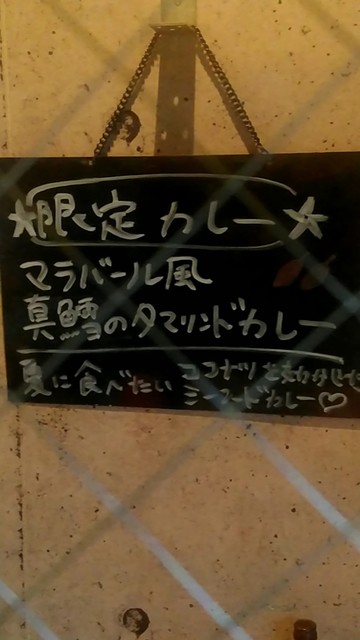 ★限定カレー★
マラバール風
真鱈のタマリンドカレー
夏に食べたい ココナツを効かせた
シーフードカレー♡